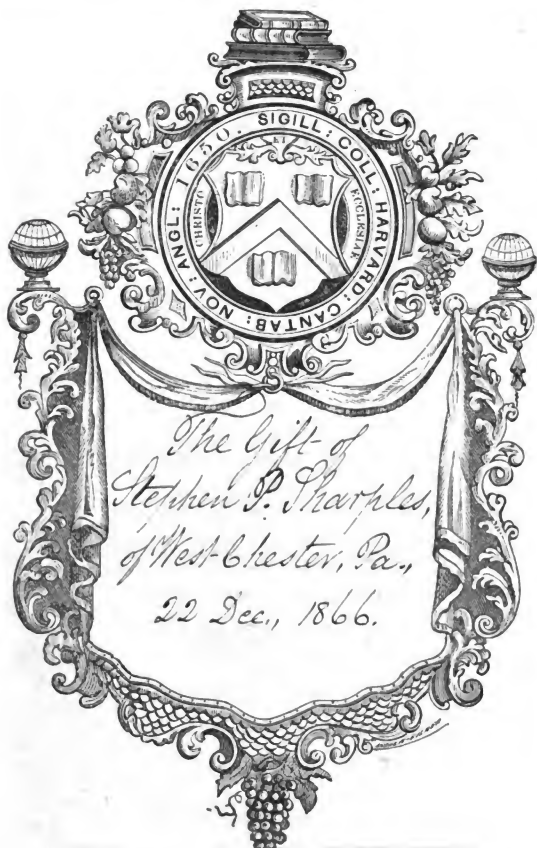 SIGILL: COLL: HARVARD: CANTAB: NOV: ANGL: 1650.
ET
CHRISTO
ECCLESIAE
The Gift of
Stephen P. Sharples,
of West Chester, Pa.,
22 Dec., 1866.